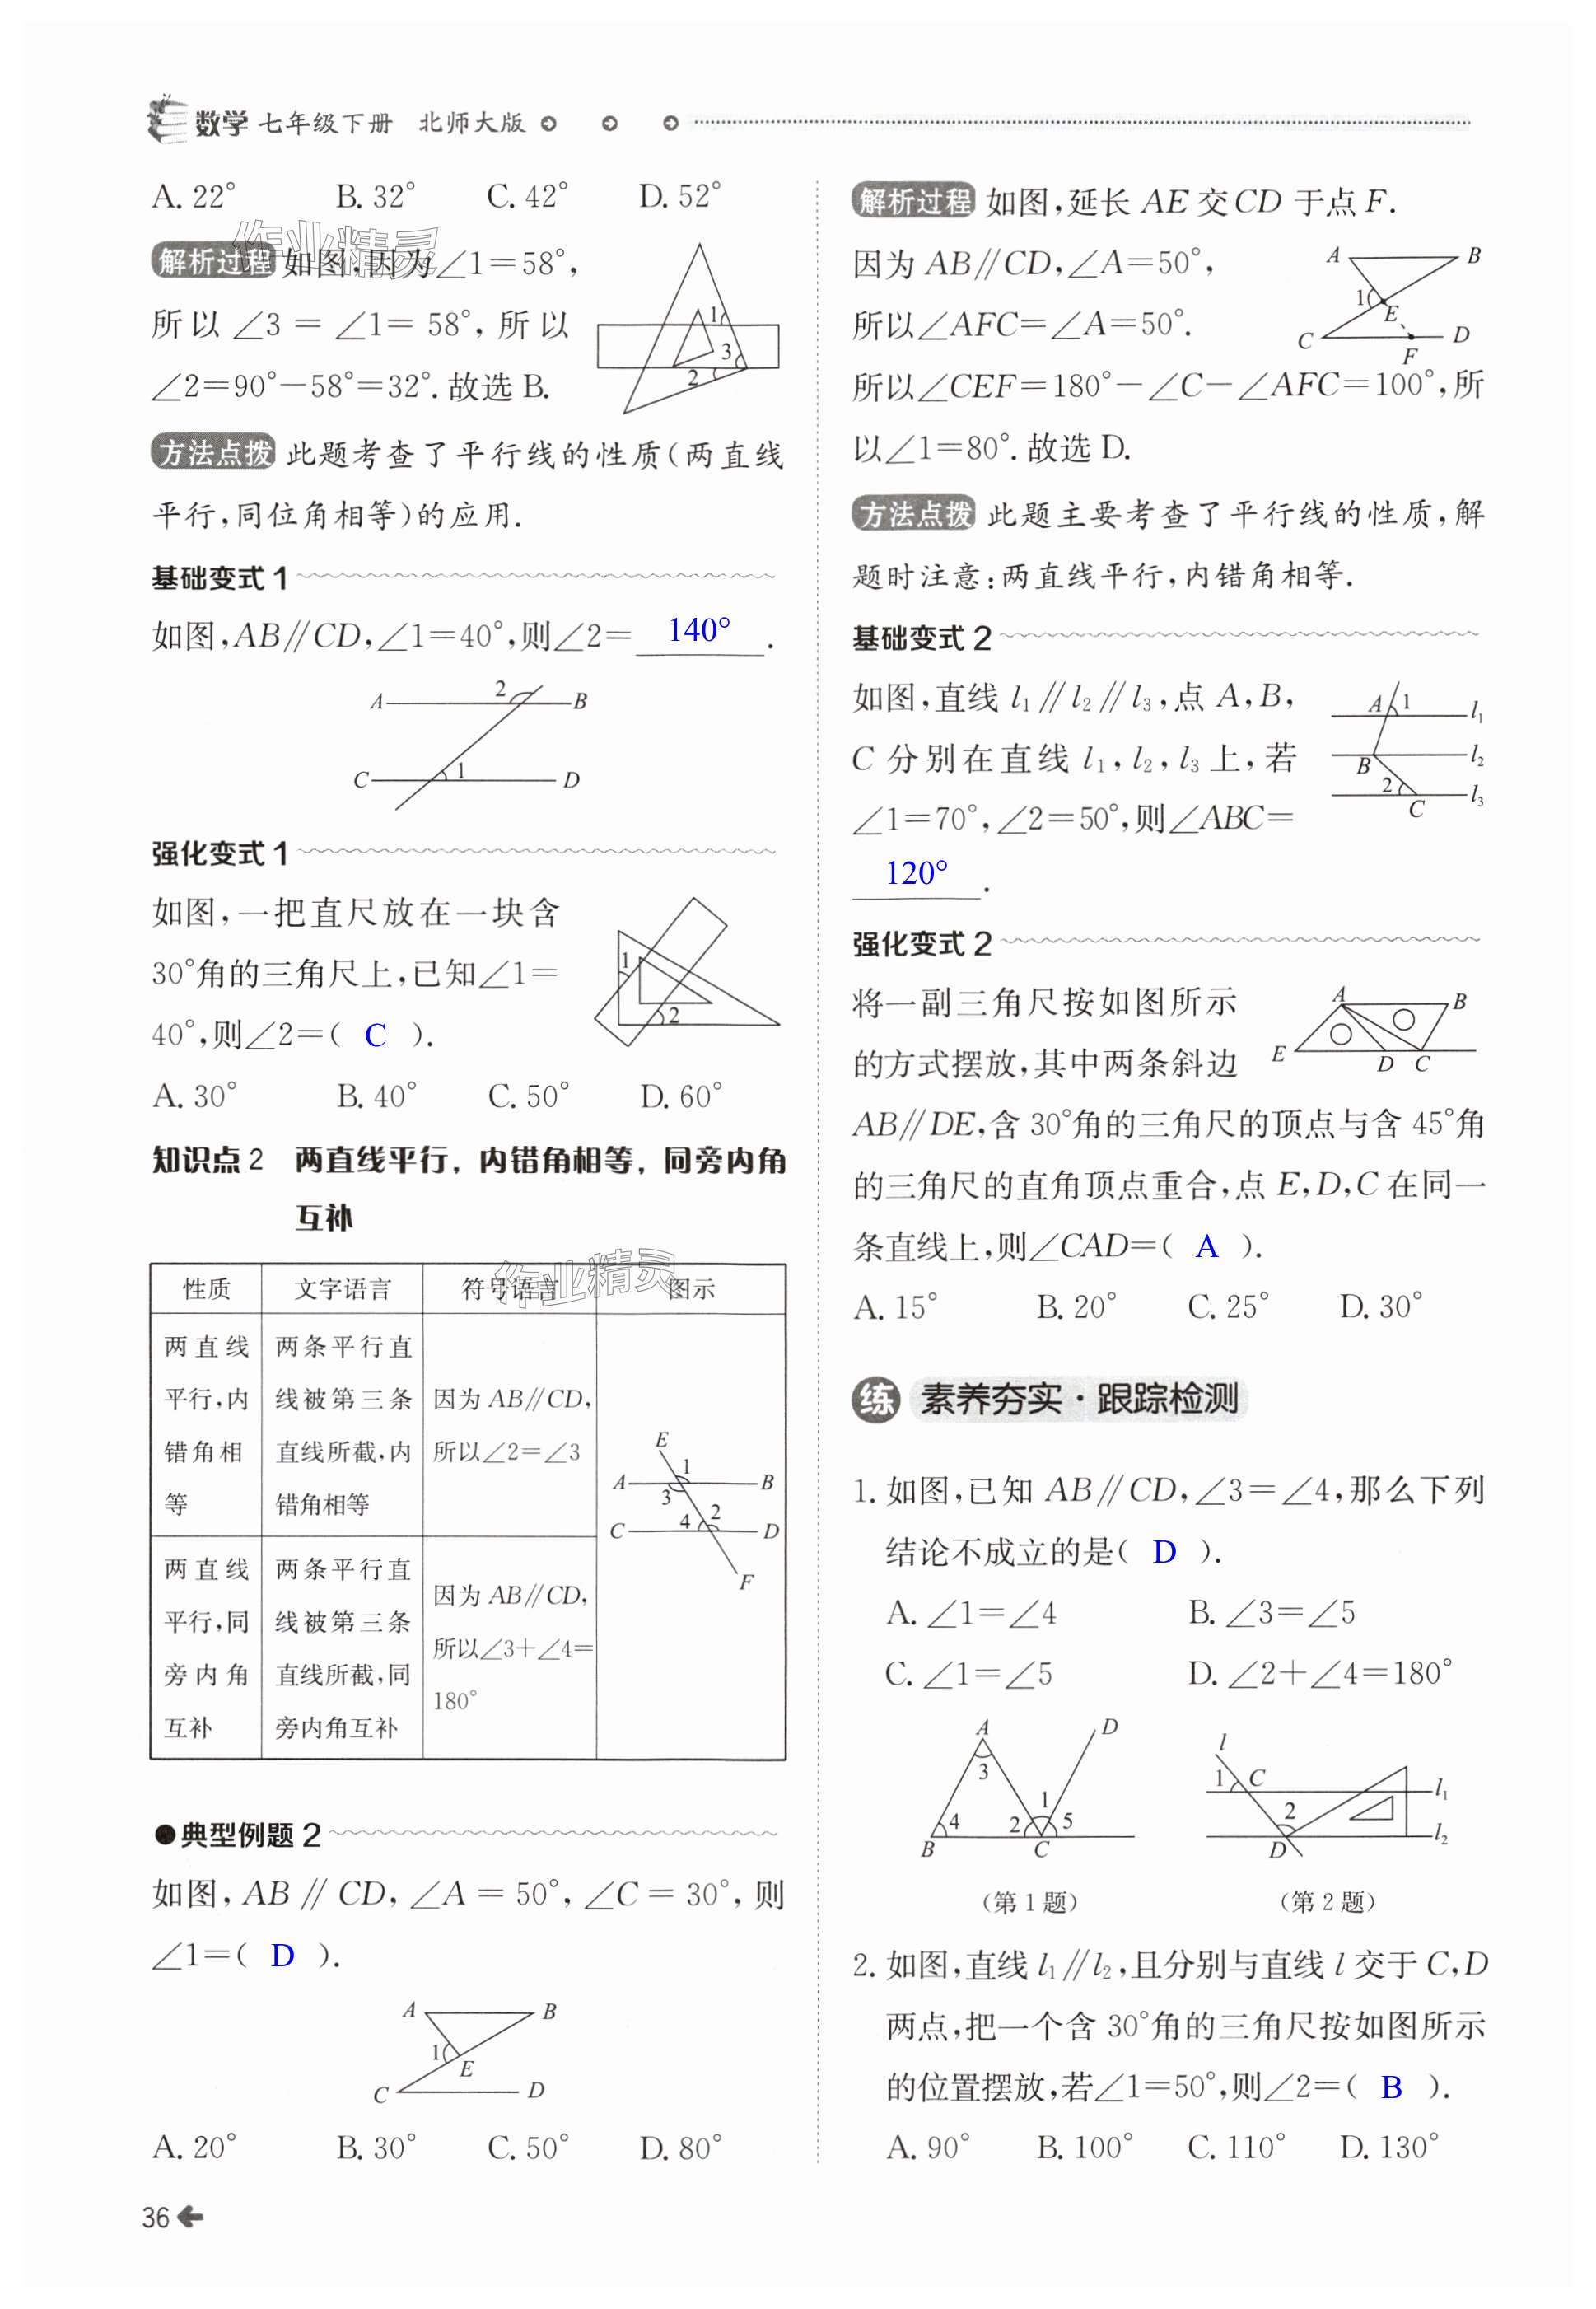 数学 七年级下册 北师大版
A. 22° B. 32° C. 42° D. 52°
解析过程 如图,因为∠1=58°,
所以∠3=∠1=58°,所以
∠2=90°-58°=32°.故选 B.
1
3
2
方法点拨 此题考查了平行线的性质(两直线
平行,同位角相等)的应用.
基础变式 1
如图,AB∥CD,∠1=40°,则∠2= 140° .
A 2 B
C 1 D
强化变式 1
如图,一把直尺放在一块含
30°角的三角尺上,已知∠1=
40°,则∠2=( C ).
1
2
A. 30° B. 40° C. 50° D. 60°
知识点 2 两直线平行,内错角相等,同旁内角
互补
性质 文字语言 符号语言 图示
两直线
平行,内
错角相
等
两条平行直
线被第三条
直线所截,内
错角相等
因为 AB∥CD,
所以∠2=∠3
E
A 1 B
3
C 4 2 D
F
两直线
平行,同
旁内角
互补
两条平行直
线被第三条
直线所截,同
旁内角互补
因为 AB∥CD,
所以∠3+∠4=
180°
●典型例题 2
如图,AB∥CD,∠A=50°,∠C=30°,则
∠1=( D ).
A B
1 E
C D
A. 20° B. 30° C. 50° D. 80°
36
解析过程 如图,延长 AE 交 CD 于点 F.
因为 AB∥CD,∠A=50°,
所以∠AFC=∠A=50°.
A B
1 E
C D
F
所以∠CEF=180°-∠C-∠AFC=100°,所
以∠1=80°.故选 D.
方法点拨 此题主要考查了平行线的性质,解
题时注意:两直线平行,内错角相等.
基础变式 2
如图,直线 l₁∥l₂∥l₃,点 A,B,
C 分别在直线 l₁,l₂,l₃ 上,若
∠1=70°,∠2=50°,则∠ABC=
120° .
A 1 l₁
B l₂
2 C l₃
强化变式 2
将一副三角尺按如图所示
的方式摆放,其中两条斜边
AB∥DE,含 30°角的三角尺的顶点与含 45°角
的三角尺的直角顶点重合,点 E,D,C 在同一
条直线上,则∠CAD=( A ).
A B
E D C
A. 15° B. 20° C. 25° D. 30°
练 素养夯实·跟踪检测
1. 如图,已知 AB∥CD,∠3=∠4,那么下列
结论不成立的是( D ).
A. ∠1=∠4 B. ∠3=∠5
C. ∠1=∠5 D. ∠2+∠4=180°
A D
3
4 2 1 5
B C
(第 1 题)
l
1 C l₁
2
D l₂
(第 2 题)
2. 如图,直线 l₁∥l₂,且分别与直线 l 交于 C,D
两点,把一个含 30°角的三角尺按如图所示
的位置摆放,若∠1=50°,则∠2=( B ).
A. 90° B. 100° C. 110° D. 130°
作业精灵
作业精灵